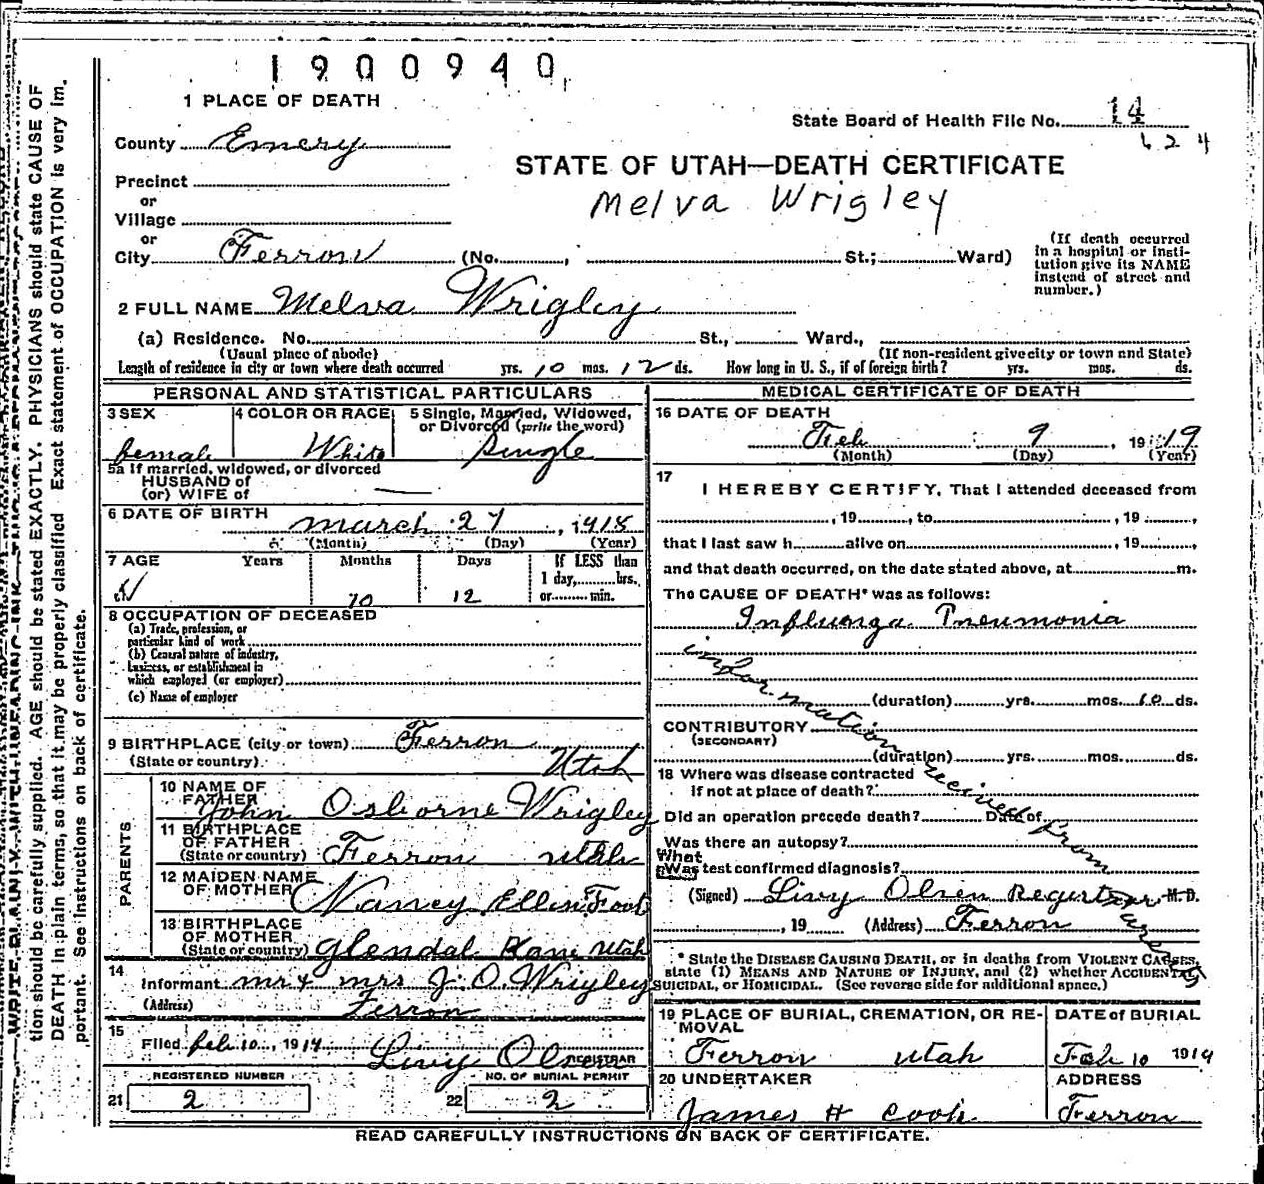 1900940
1 PLACE OF DEATH
State Board of Health File No. 14
624
County Emery
STATE OF UTAH—DEATH CERTIFICATE
Melva Wrigley
Precinct
or
Village
or
City Ferron (No. , St.; Ward)
(If death occurred
in a hospital or insti-
tution give its NAME
instead of street and
number.)
2 FULL NAME Melva Wrigley
(a) Residence. No. St., Ward.,
(Usual place of abode) (If non-resident give city or town and State)
Length of residence in city or town where death occurred yrs. 10 mos. 12 ds. How long in U. S., if of foreign birth? yrs. mos. ds.
PERSONAL AND STATISTICAL PARTICULARS
3 SEX
female
4 COLOR OR RACE
White
5 Single, Married, Widowed,
or Divorced (write the word)
Single
5a If married, widowed, or divorced
HUSBAND of
(or) WIFE of
6 DATE OF BIRTH
March 27, 1918
(Month) (Day) (Year)
7 AGE Years Months Days If LESS than
1 day, hrs.
10 12 or min.
8 OCCUPATION OF DECEASED
(a) Trade, profession, or
particular kind of work
(b) General nature of industry,
business, or establishment in
which employed (or employer)
(c) Name of employer
9 BIRTHPLACE (city or town) Ferron
(State or country) Utah
PARENTS
10 NAME OF
FATHER John Osborne Wrigley
11 BIRTHPLACE
OF FATHER
(State or country) Ferron Utah
12 MAIDEN NAME
OF MOTHER Nancy Ellen
13 BIRTHPLACE
OF MOTHER
(State or country) Glendal Utah
14
Informant mr & mrs J. O. Wrigley
(Address) Ferron
15
Filed Feb 10, 1919 Livy Olsen
REGISTRAR
REGISTERED NUMBER NO. OF BURIAL PERMIT
21 2 22 2
MEDICAL CERTIFICATE OF DEATH
16 DATE OF DEATH
Feb 9, 1919
(Month) (Day) (Year)
17
I HEREBY CERTIFY, That I attended deceased from
, 19 , to , 19 ,
that I last saw h alive on , 19 ,
and that death occurred, on the date stated above, at m.
The CAUSE OF DEATH* was as follows:
Influenza Pneumonia
information received from
(duration) yrs. mos. 10 ds.
CONTRIBUTORY
(SECONDARY)
(duration) yrs. mos. ds.
18 Where was disease contracted
if not at place of death?
Did an operation precede death? Date of
Was there an autopsy?
What
Was test confirmed diagnosis?
(Signed) Livy Olsen Registrar M.D.
, 19 (Address) Ferron
* State the DISEASE CAUSING DEATH, or in deaths from VIOLENT CAUSES,
state (1) MEANS AND NATURE OF INJURY, and (2) whether ACCIDENTAL,
SUICIDAL, or HOMICIDAL. (See reverse side for additional space.)
19 PLACE OF BURIAL, CREMATION, OR RE-
MOVAL
Ferron Utah
DATE of BURIAL
Feb 10 1919
20 UNDERTAKER
James H Cook
ADDRESS
Ferron
READ CAREFULLY INSTRUCTIONS ON BACK OF CERTIFICATE.
WRITE PLAINLY, WITH UNFADING INK—THIS IS A PERMANENT RECORD
tion should be carefully supplied. AGE should be stated EXACTLY. PHYSICIANS should state CAUSE OF
DEATH in plain terms, so that it may be properly classified. Exact statement of OCCUPATION is very im-
portant. See instructions on back of certificate.